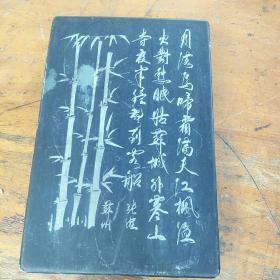 月落乌啼霜满天江枫渔
火对愁眠姑苏城外寒山
寺夜半钟声到客船
张继
苏州